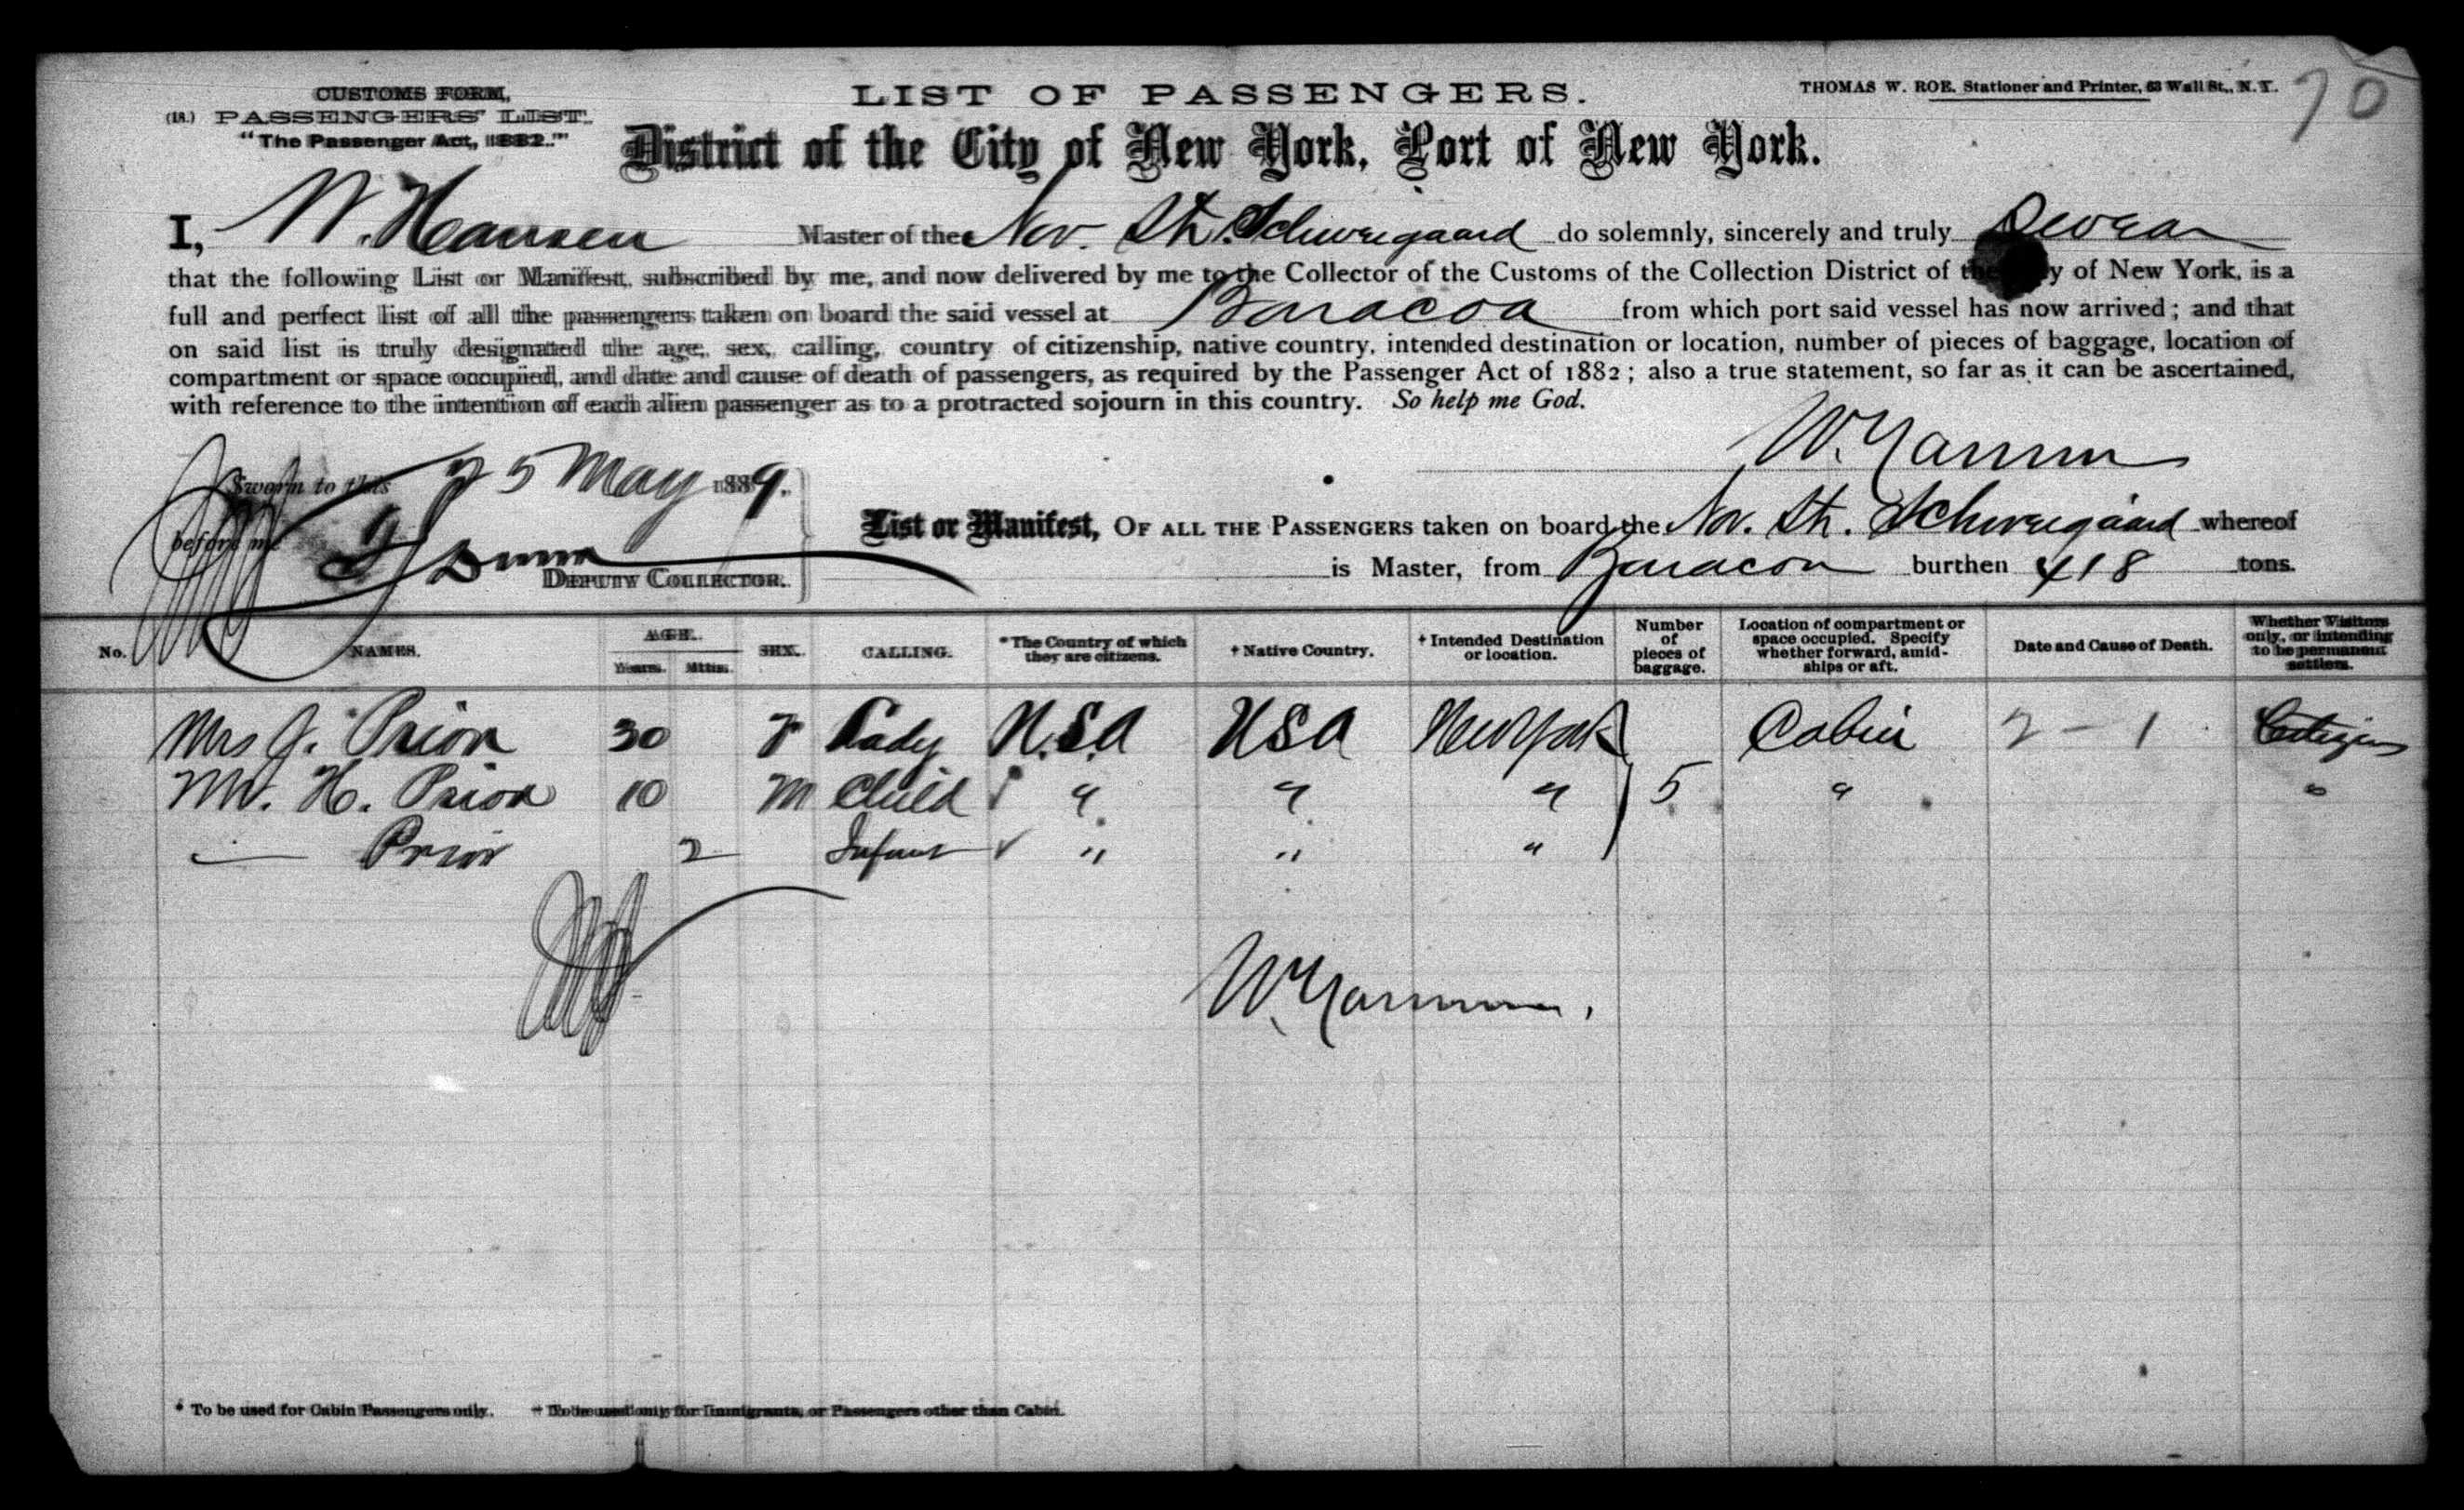 CUSTOMS FORM,
(18.) PASSENGERS' LIST.
"The Passenger Act, 1882."
LIST OF PASSENGERS.
THOMAS W. ROE, Stationer and Printer, 63 Wall St., N.Y.
70
District of the City of New York, Port of New York.
I, W. Hansen Master of the Nor. Str. Schweigaard do solemnly, sincerely and truly Swear
that the following List or Manifest, subscribed by me, and now delivered by me to the Collector of the Customs of the Collection District of the y of New York, is a
full and perfect list of all the passengers taken on board the said vessel at Baracoa from which port said vessel has now arrived; and that
on said list is truly designated the age, sex, calling, country of citizenship, native country, intended destination or location, number of pieces of baggage, location of
compartment or space occupied, and date and cause of death of passengers, as required by the Passenger Act of 1882; also a true statement, so far as it can be ascertained,
with reference to the intention of each alien passenger as to a protracted sojourn in this country. So help me God.
W. Hansen
Sworn to this 25 May 1889.
before me
DEPUTY COLLECTOR.
List or Manifest, OF ALL THE PASSENGERS taken on board the Nor. Str. Schweigaard whereof
is Master, from Baracoa burthen 418 tons.
No. NAMES. AGE. Years. Mths. SEX. CALLING. *The Country of which they are citizens. †Native Country. †Intended Destination or location. Number of pieces of baggage. Location of compartment or space occupied. Specify whether forward, amidships or aft. Date and Cause of Death. Whether Visitors only, or intending to be permanent settlers.
Mrs J. Prior 30 F Lady U.S.A USA New York Cabin 2 - 1 Citizens
Mr. H. Prior 10 M Child " " " 5 " "
— Prior 2 Infant " " "
W. Hansen.
* To be used for Cabin Passengers only. † To be used only for Immigrants, or Passengers other than Cabin.